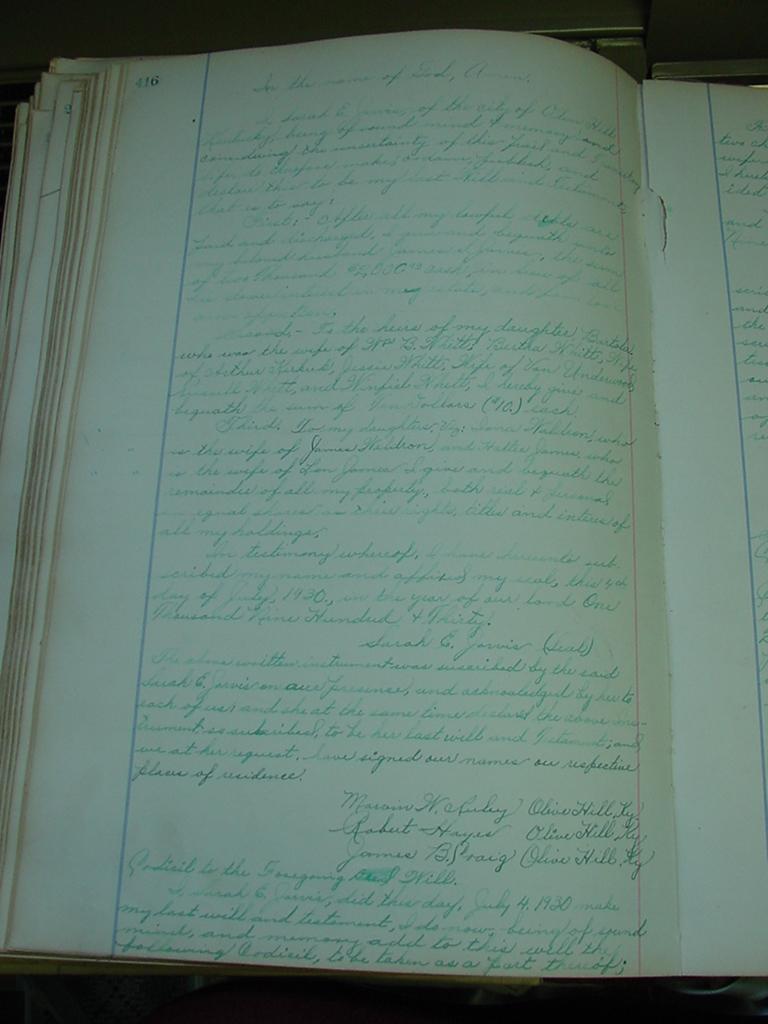 416
In the name of God, Amen.
I, Sarah E. Jarvis, of the city of Olive Hill
Kentucky, being of sound mind & memory and
considering the uncertainty of this frail and
life, do therefore make, ordain, publish, and
declare this to be my last Will and Testament,
that is to say:
First:- After all my lawful debts are
paid and discharged, I give and bequath unto
my beloved husband James Jarvis, the sum
of two thousand $2,000.00 cash, in lieu of all
his dower interest in my estate, and
Second,- To the heirs of my daughter
who was the wife of Wm B. Whitt, Bertha Whitt, Wife
of Arthur Kirkuk, Jessie Whitt, Wife of Van Underwood,
Whitt, and Winfield Whitt, I hereby give and
bequath the sum of Ten Dollars ($10.) each.
Third: To my daughters, Viz: Waldron, who
is the wife of James Waldron, and Hattie James, who
is the wife of Lon James I give and bequath the
remainder of all my property, both real & personal
in equal shares as their rights, titles and interes of
all my holdings.
In testimony whereof, I have hereunto sub-
scribed my name and affixed my seal, this 4th
day of July, 1930, in the year of our Lord One
Thousand Nine Hundred & Thirty.
Sarah E. Jarvis (Seal)
The above written instrument was suscribed by the said
Sarah E. Jarvis in presence, and acknowledged by her to
each of us; and she at the same time declared the above ins-
trument, so subscribed, to be her last will and Testament; and
we at her request, have signed our names our respective
places of residence.
Marvin W. Olive Hill, Ky.
Robert Hayes Olive Hill, Ky
James B. Craig Olive Hill, Ky
Codisil to the Foregoing Will.
I, Sarah E. Jarvis, did this day, July 4, 1930 make
my last will and testament, I do now, being of sound
mind, and memory add to this will the
following Codisil, to be taken as a part thereof;